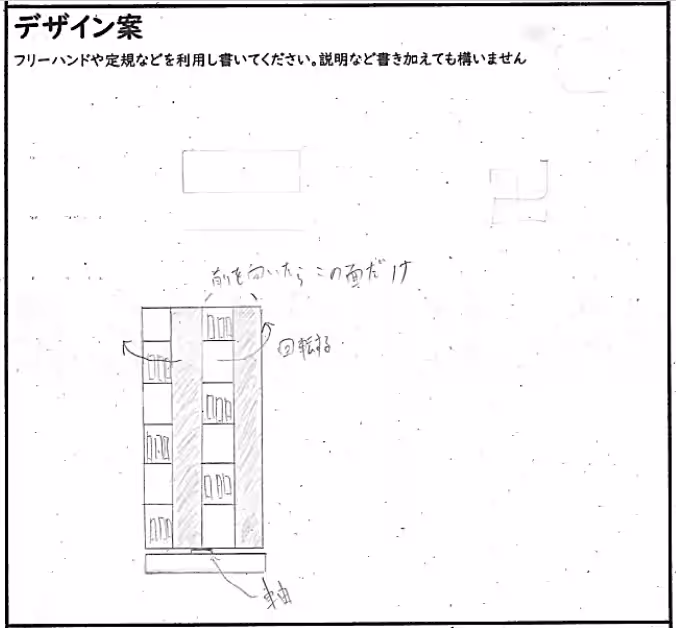 デザイン案
フリーハンドや定規などを利用し書いてください。説明など書き加えても構いません
前を向いたら この面だけ
回転する
軸